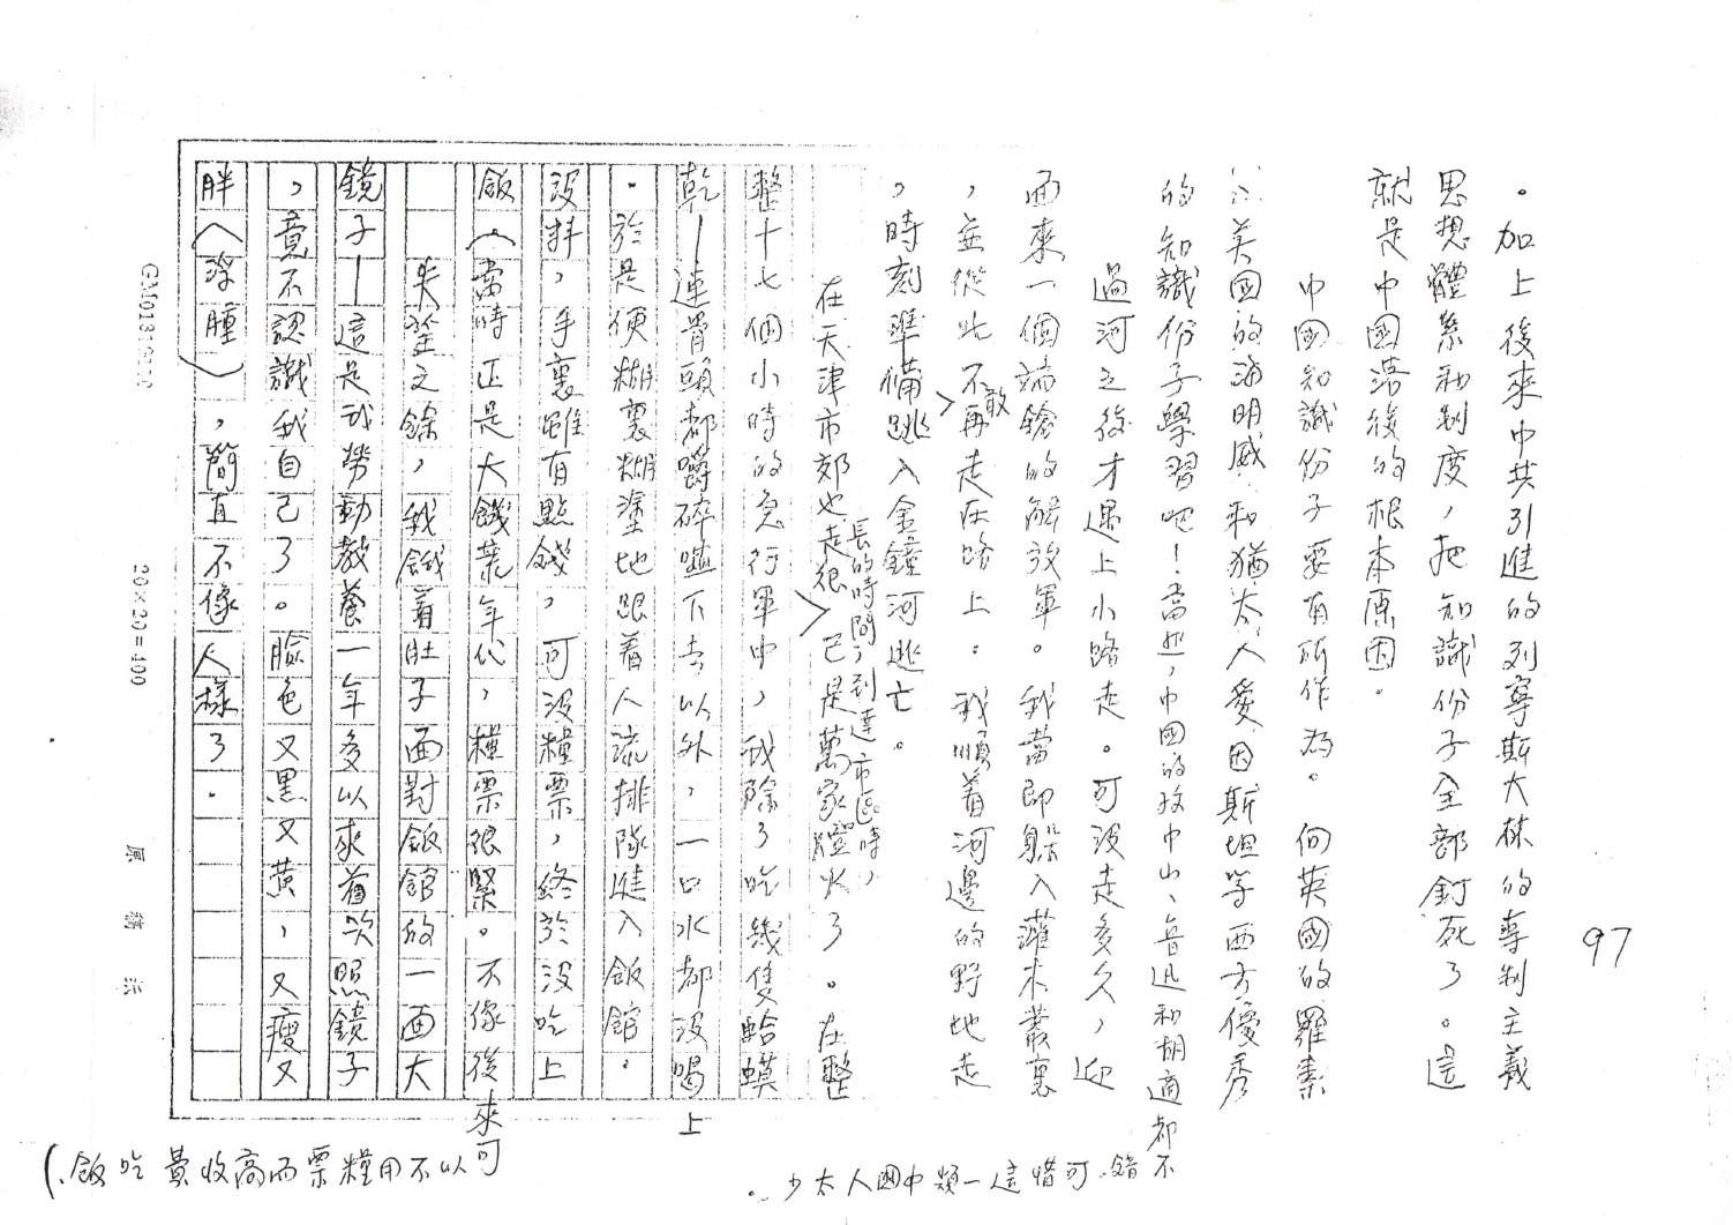 97
。加上後來中共引進的列寧斯大林的專制主義
思想體系和制度，把知識份子全部釘死了。這
就是中國落後的根本原因。
中國知識份子要有所作為。向英國的羅素
、美國的海明威和猶太人愛因斯坦等西方優秀
的知識份子學習吧！當然，中國的孫中山、魯迅和胡適都不
錯，可惜這一類中國人太少。
過河之後才遇上小路走。可沒走多久，迎
面來一個端槍的解放軍。我當即躲入灌木叢裏
，並從此不敢再走在路上。我順着河邊的野地走
，時刻準備跳入金鐘河逃亡。
在天津市郊也走很長的時間，到達市區時，已是萬家燈火了。在整
整十七個小時的急行軍中，我除了吃幾隻蛤蟆
乾—連骨頭都嚼碎嚥下去以外，一口水都沒喝上
。於是便糊裏糊塗地跟着人流排隊進入飯館。
沒料，手裏雖有點錢，可沒糧票，終於沒吃上
飯。（當時正是大饑荒年代，糧票很緊。不像後來可
可以不用糧票而高收費吃飯。）
失望之餘，我餓着肚子面對飯館的一面大
鏡子—這是我勞動教養一年多以來首次照鏡子
，竟不認識我自己了。臉色又黑又黃，又瘦又
胖（浮腫），簡直不像人樣了。
20×20=400
原稿